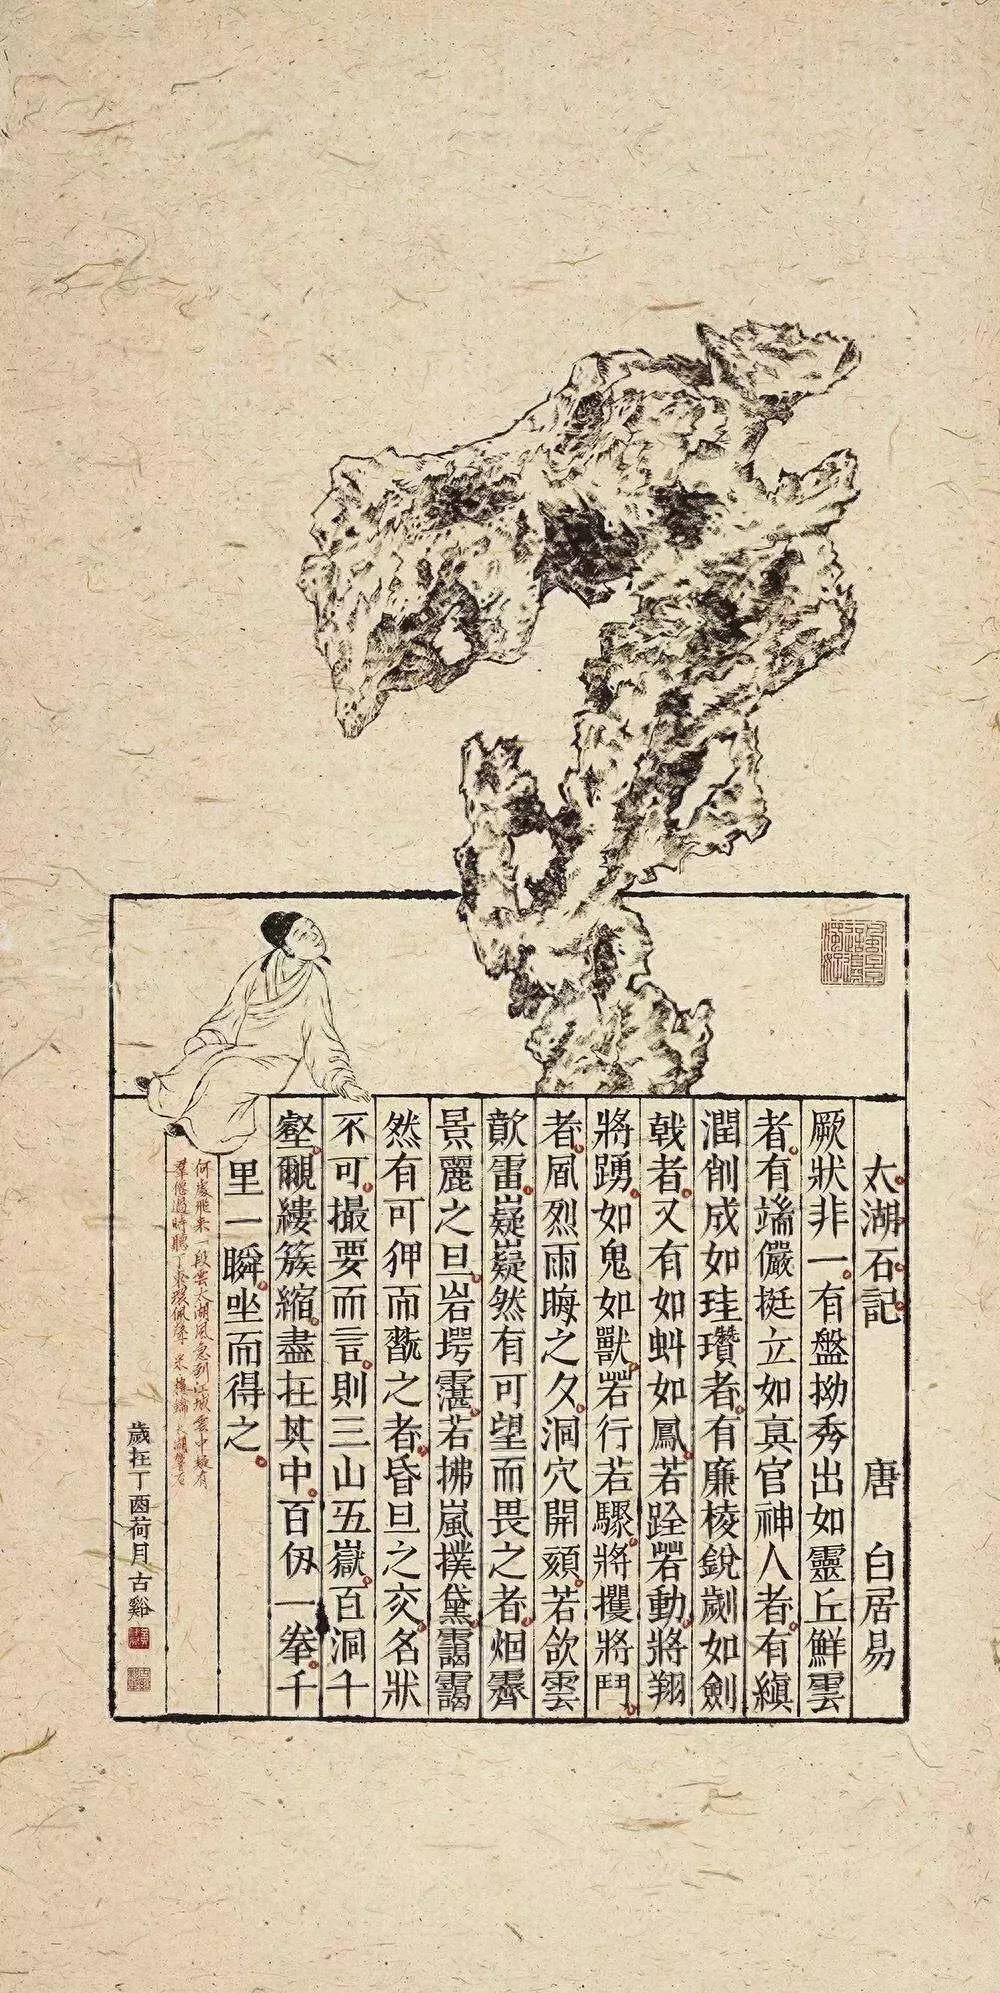 太湖石記 唐 白居易
厥狀非一有盤拗秀出如靈丘鮮雲
者有端儼挺立如真官神人者有縝
潤削成如珪瓚者有廉棱銳劌如劍
戟者又有如虯如鳳若跧若動將翔
將踴如鬼如獸若行若驟將攫將鬥
者風烈雨晦之夕洞穴開頦若欱雲
歕雷嶷嶷然有可望而畏之者烟霽
景麗之旦岩堮霮若拂嵐撲黛靄靄
然有可狎而翫之者昏旦之交名狀
不可撮要而言則三山五嶽百洞千
壑覼縷簇縮盡在其中百仞一拳千
里一瞬坐而得之
何處飛来一段雲太湖風急到江城雲中疑有
羣僊過時聽丁東環佩聲
歲在丁酉荷月古谿